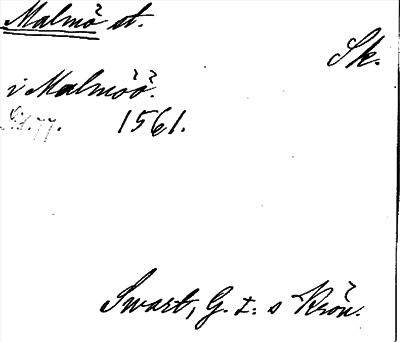 Malmö st.
Sk.
i Malmöö.
Sid. 77. 1561.
Swart, G. I: s Krön.